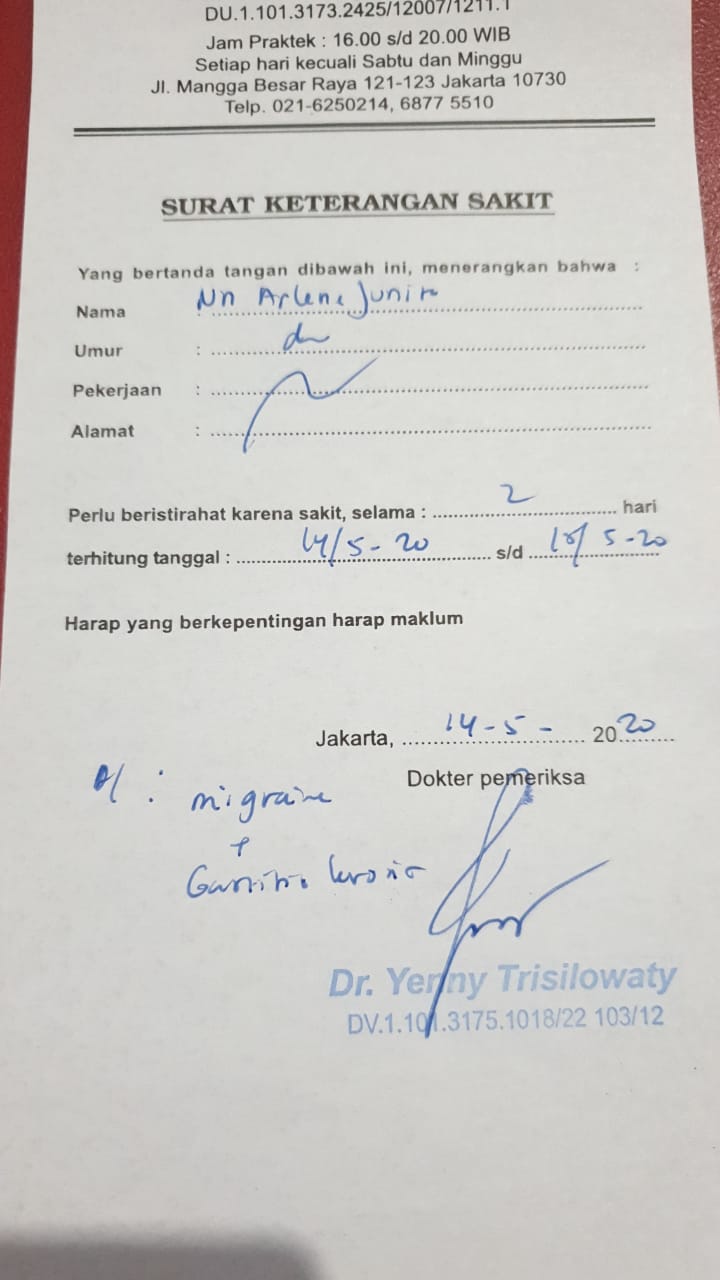 DU.1.101.3173.2425/12007/1211.1
Jam Praktek : 16.00 s/d 20.00 WIB
Setiap hari kecuali Sabtu dan Minggu
Jl. Mangga Besar Raya 121-123 Jakarta 10730
Telp. 021-6250214, 6877 5510
SURAT KETERANGAN SAKIT
Yang bertanda tangan dibawah ini, menerangkan bahwa :
Nama : Nn Arlene
Umur :
Pekerjaan :
Alamat :
Perlu beristirahat karena sakit, selama : 2 hari
terhitung tanggal : 14/5-20 s/d 15/5-20
Harap yang berkepentingan harap maklum
Jakarta, 14-5- 2020
Dokter pemeriksa
migraine
+
Dr. Yenny Trisilowaty
DV.1.101.3175.1018/22 103/12